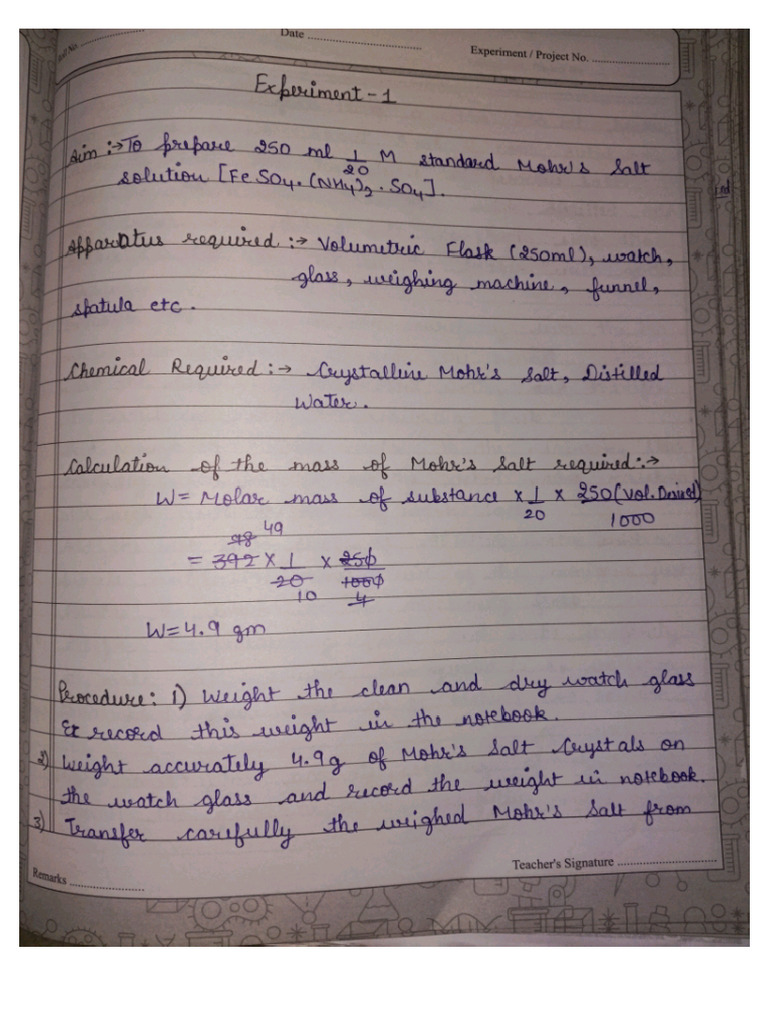 Roll No. ..................
Date ..............................
Experiment / Project No. ....................
Experiment - 1
Aim :→ To prepare 250 ml 1/20 M standard Mohr's Salt
solution [FeSO4.(NH4)2.SO4].
Apparatus required :→ Volumetric Flask (250ml), watch,
glass, weighing machine, funnel,
spatula etc.
Chemical Required :→ Crystalline Mohr's Salt, Distilled
Water.
Calculation of the mass of Mohr's Salt required :→
W = Molar mass of substance × 1/20 × 250(Vol. Desired)/1000
98 49
= 392 × 1/20 × 250/1000
10 4
W = 4.9 gm
Procedure: 1) Weight the clean and dry watch glass
& record this weight in the notebook.
2) Weight accurately 4.9g of Mohr's Salt Crystals on
the watch glass and record the weight in notebook.
3) Transfer carefully the weighed Mohr's Salt from
Remarks ....................
Teacher's Signature ..........................